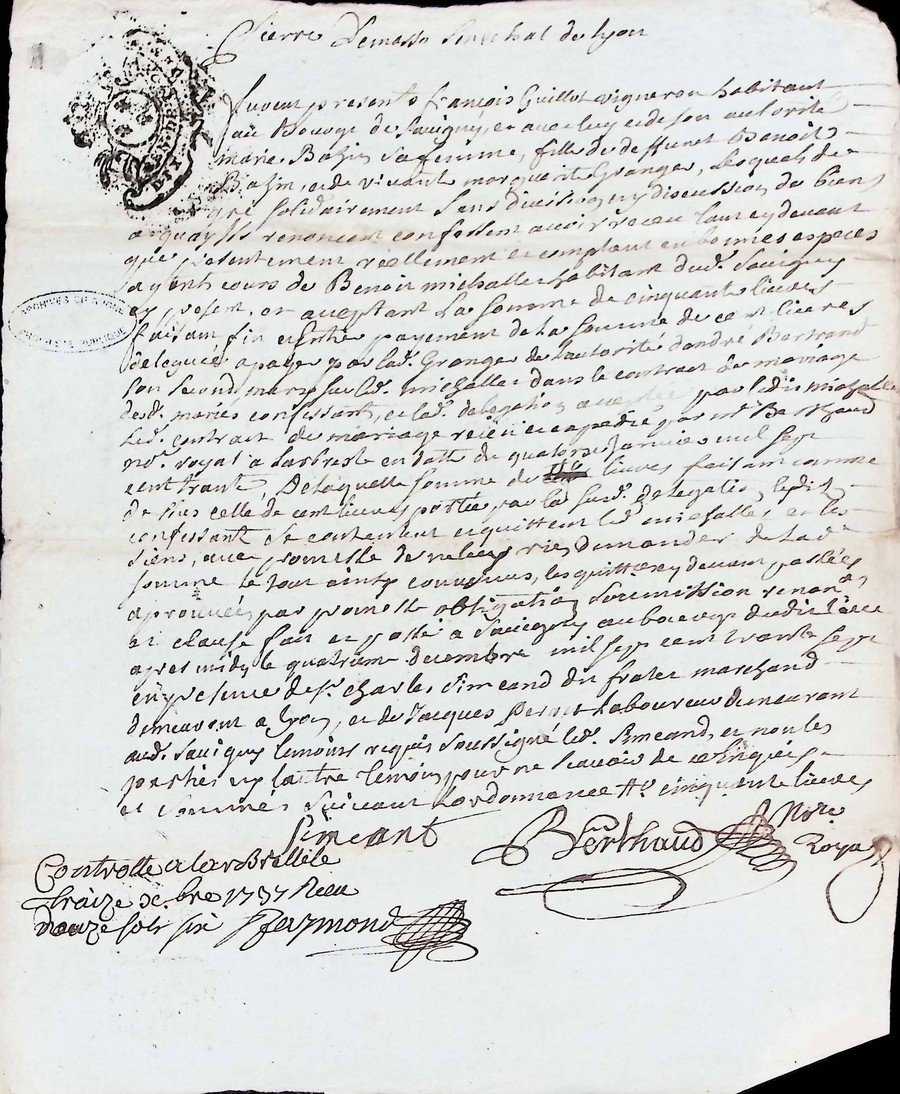 Pierre Demasso Senechal de Lyon
Furent presents françois Guillot vigneron habitant
au Bourg de Savigny, et avec luy et de son autorite
marie Bazin sa femme, fille de deffunct Benoit
Bazin, et de vivante marguerite Granger, lesquels de
gré solidairement sans division ny discussion de biens
a quoy ils renoncent confessent avoir receu tant cy devant
que presentement reellement et comptant en bonnes especes
ayant cours de Benoit michallet habitant dud. Savigny
cy present, et acceptant La somme de cinquante livres
faisant fin et entier payement de la somme de cent livres
deleguée a payer par lad. Granger de l'autorité d'andré Bertrand
son second mary sur led. michallet dans le contract de mariage
desd. maries confessants, et lad. delegation acceptée par ledit michallet
Led. contract de mariage receu et expedié par me Berthaud
nore. royal a Larbresle en datte du quatorze janvier mil sept
cent trante, De laquelle somme de livres faisant comme
dessus celle de cent livres portée par la susd. delegation, lesdits
confessants se contentent et quittent led. michallet et les
siens, avec promesse de ne luy rien demander de lad.
somme le tout ainsy convenus, les quittances cy devant passées
aprouvées par promesse obligation soumission renonon.
et clause fait et passé a Savigny au bourg dudit lieu
apres midy le quatrieme decembre mil sept cent trante sept
en presence de sr. charles Simeand du frater marchand
demeurant a lyon, et de Jacques Perret Laboureur demeurant
aud. Savigny temoins requis soussigné led. Simeand, et non les
parties ny l'autre temoin pour ne scavoir de ce enquis
et sommés suivant L'ordonnance cinquante livres
Simeant
Berthaud Nore
Royal
Controllé a Larbrelle le
traize xbre 1737 Receu
douze sols six Raymond
ARCHIVES DU RHONE